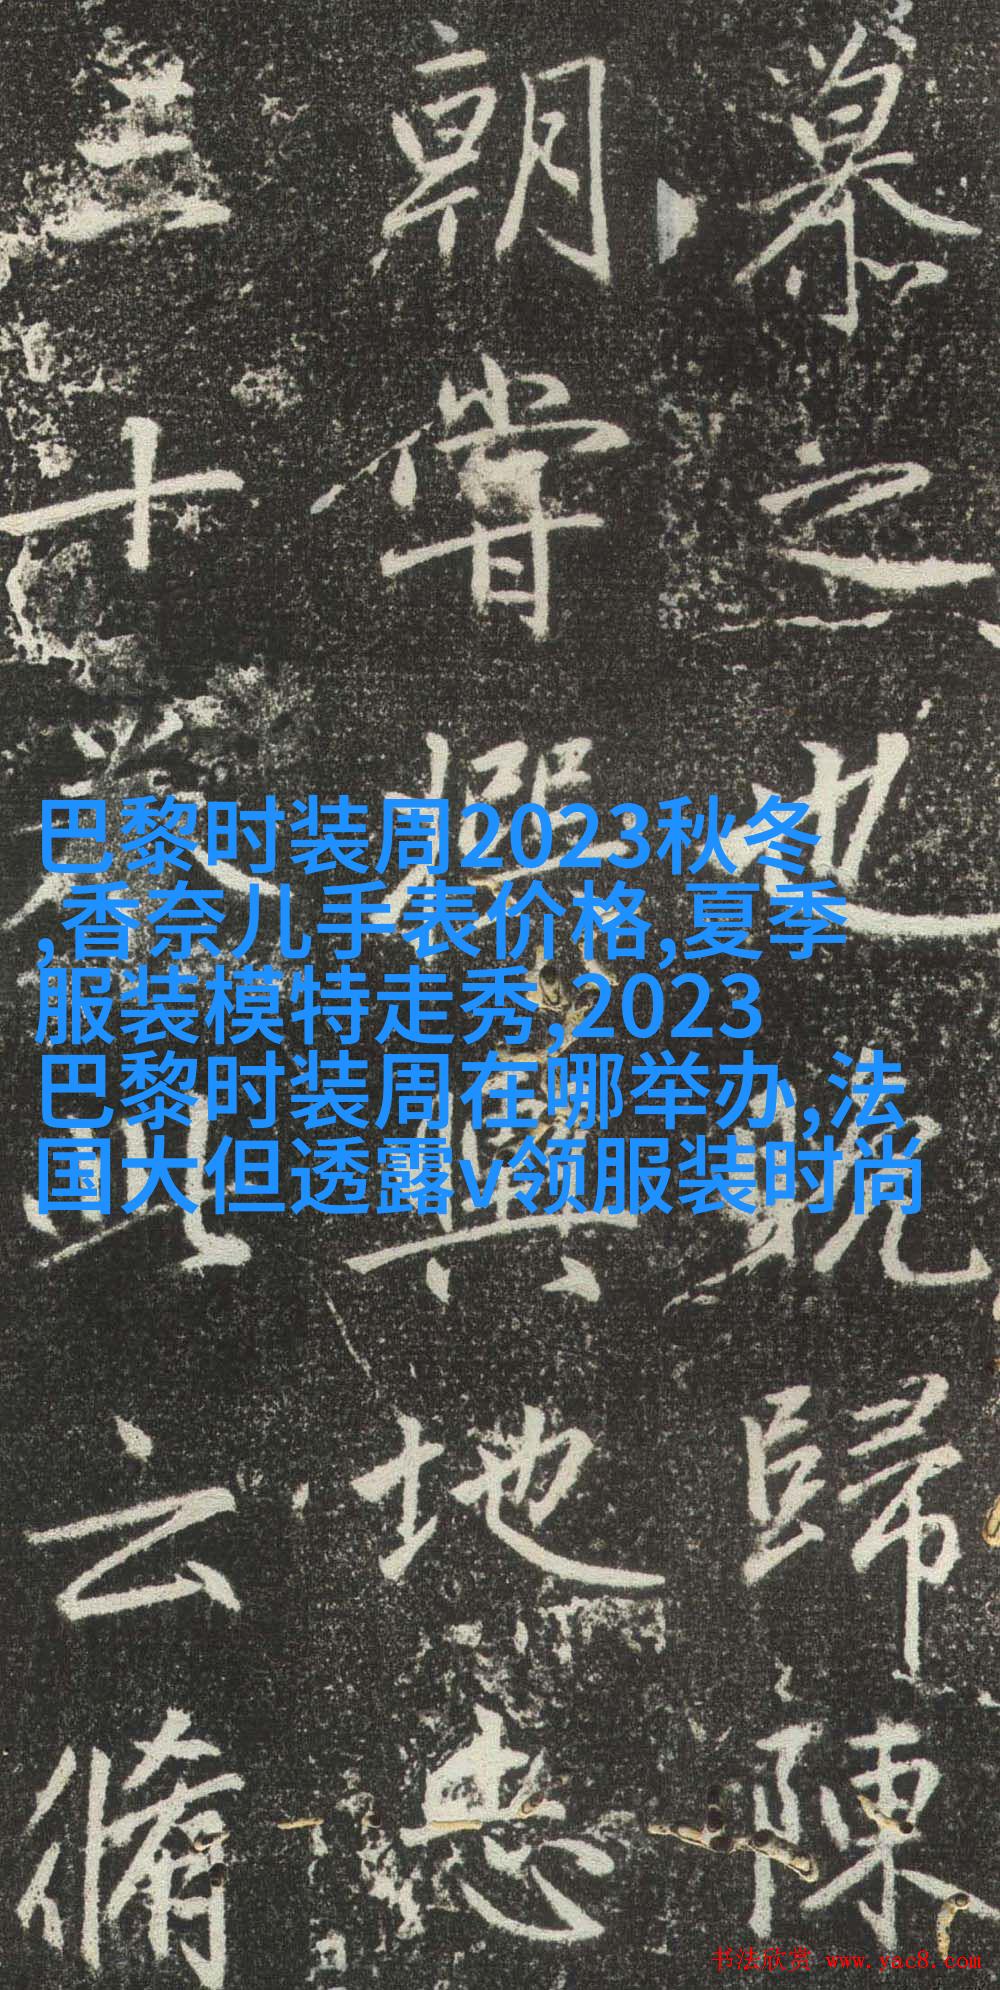 慕之也既歸陳
朝常擢與地忠
云脩
巴黎时装周2023秋冬
,香奈儿手表价格,夏季
服装模特走秀,2023
巴黎时装周在哪举办,法
国大但透露v领服装时尚
书法欣赏 www.yac8.com